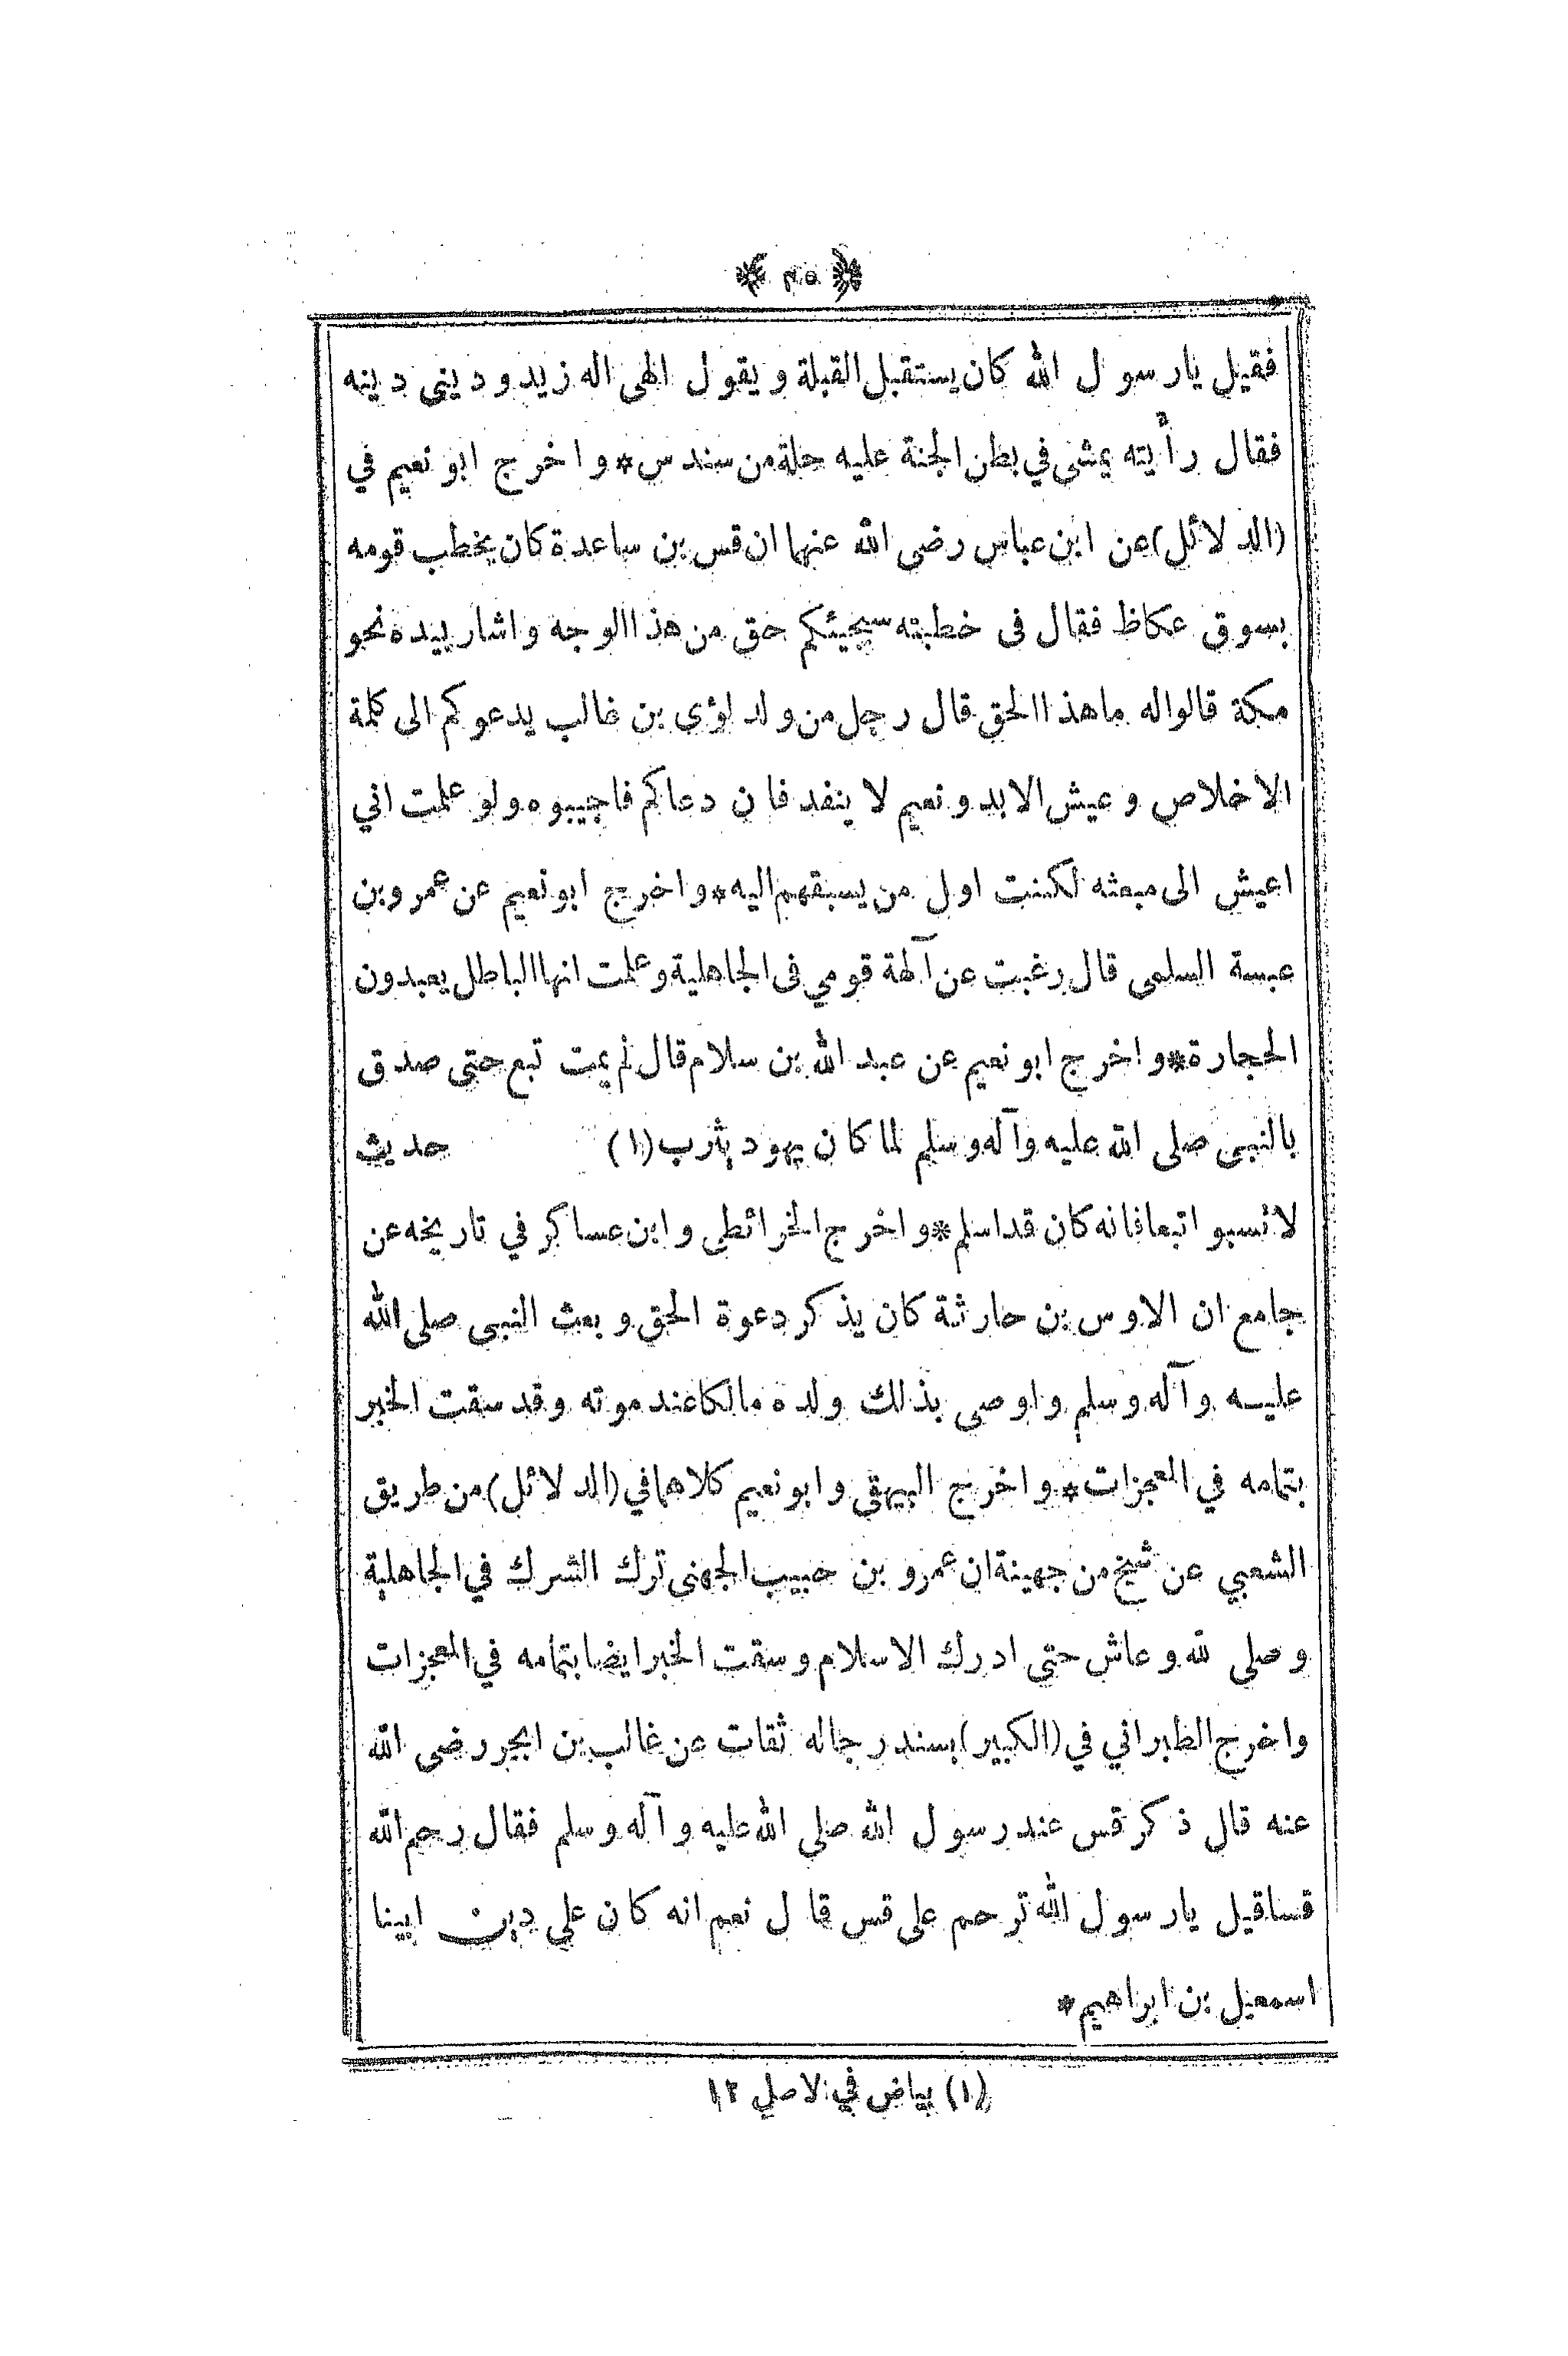 فقيل يا رسول الله كان يستقبل القبلة ويقول الهى اله زيد ودينى دينه
فقال رأيته يمشى في بطن الجنة عليه حلة من سندس * واخرج ابو نعيم في
(الدلائل) عن ابن عباس رضى الله عنهما ان قس بن ساعدة كان يخطب قومه
بسوق عكاظ فقال فى خطبته سيجيئكم حق من هذا الوجه واشار بيده نحو
مكة قالوا له ما هذا الحق قال رجل من ولد لؤى بن غالب يدعوكم الى كلمة
الاخلاص وعيش الابد ونعيم لا ينفد فان دعاكم فاجيبوه ولو علمت اني
اعيش الى مبعثه لكنت اول من يسبقهم اليه * واخرج ابو نعيم عن عمرو بن
عبسة السلمى قال رغبت عن آلهة قومي فى الجاهلية وعلمت انها الباطل يعبدون
الحجارة * واخرج ابو نعيم عن عبد الله بن سلام قال لم يمت تبع حتى صدق
بالنبى صلى الله عليه وآله وسلم لما كان يهود يثرب (١) حديث
لا تسبوا تبعا فانه كان قد اسلم * واخرج الخرائطى وابن عساكر في تاريخه عن
جامع ان الاوس بن حارثة كان يذكر دعوة الحق وبعث النبى صلى الله
عليه وآله وسلم واوصى بذلك ولده مالكا عند موته وقد سقت الخبر
بتمامه في المعجزات * واخرج البيهقى وابو نعيم كلاهما في (الدلائل) من طريق
الشعبي عن شيخ من جهينة ان عمرو بن حبيب الجهنى ترك الشرك في الجاهلية
وصلى لله وعاش حتى ادرك الاسلام وسقت الخبر ايضا بتمامه في المعجزات
واخرج الطبراني في (الكبير) بسند رجاله ثقات عن غالب بن ابجر رضى الله
عنه قال ذكر قس عند رسول الله صلى الله عليه وآله وسلم فقال رحم الله
قسا قيل يا رسول الله ترحم على قس قال نعم انه كان على دين ابينا
اسمعيل بن ابراهيم *
(١) بياض في الاصل ١٢